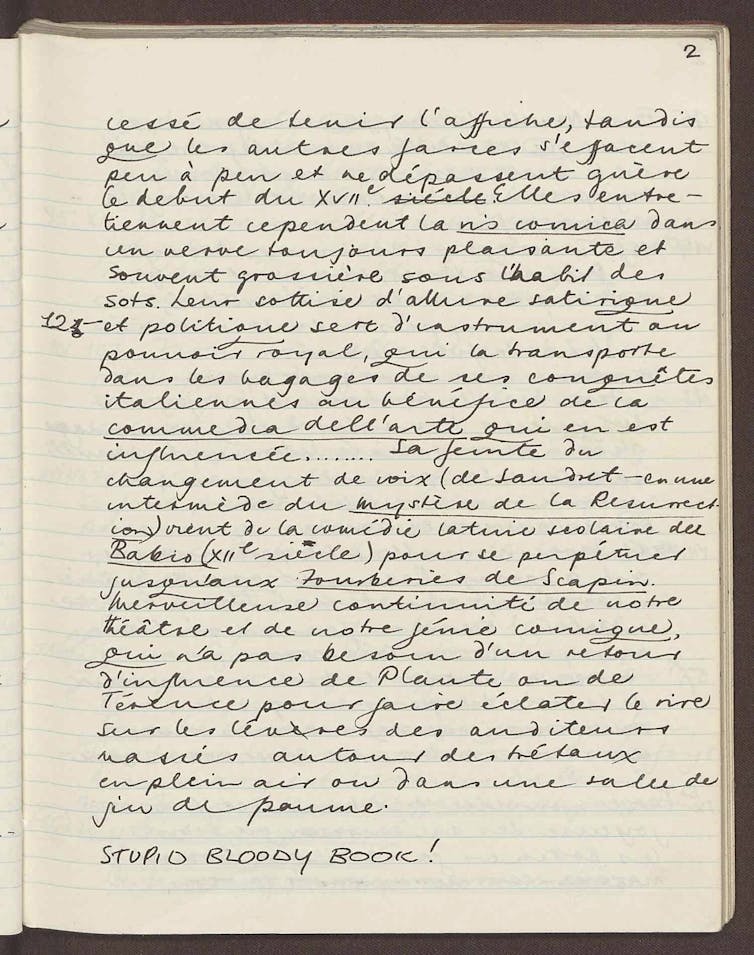 2
cessé de tenir l'affiche, tandis
que les autres farces s'effacent
peu à peu et ne dépassent guère
le debut du XVIIe siécle. Elles entre-
tiennent cependent la vis comica dans
un verve toujours plaisante et
souvent grossière sous l'habit des
sots. Leur sottise d'allure satirique
125 et politique sert d'instrument au
pouvoir royal, qui la transporte
dans les bagages de ses conquêtes
italiennes au bénéfice de la
commedia dell'arte qui en est
influencée........ Sa feinte du
changement de voix (de Saudret - en une
intermède du mystère de la Resurrect-
ion) vient de la comédie latine scolaire del
Babio (XIIe siècle) pour se perpétuer
jusqu'aux Fourberies de Scapin.
Merveilleuse continuité de notre
théâtre et de notre génie comique,
qui n'a pas besoin d'un retour
d'influence de Plaute ou de
Térence pour faire éclater le rire
sur les lèvres des auditeurs
massés autour des trétaux
en plein air ou dans une salle de
jeu de paume.
STUPID BLOODY BOOK!